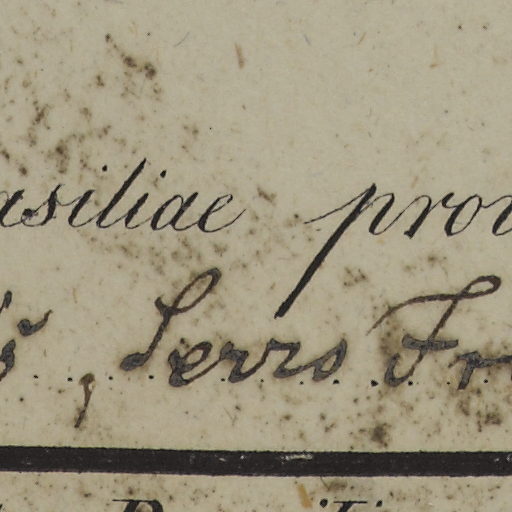 asiliae prov
, Serro Fr